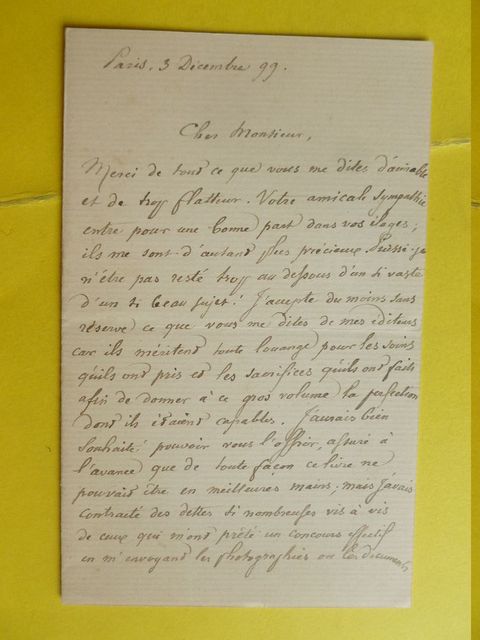 Paris, 3 Décembre 99.
Cher Monsieur,
Merci de tout ce que vous me dites d'aimable
et de trop flatteur. Votre amicale sympathie
entre pour une bonne part dans vos éloges ;
ils me sont d'autant plus précieux. Puissé-je
n'être pas resté trop au dessous d'un si vaste
d'un si beau sujet ! J'accepte du moins sans
réserve ce que vous me dites de mes éditeurs
car ils méritent toute louange pour les soins
qu'ils ont pris et les sacrifices qu'ils ont faits
afin de donner à ce gros volume la perfection
dont ils étaient capables. J'aurais bien
souhaité pouvoir vous l'offrir, assuré à
l'avance que de toute façon ce livre ne
pouvait être en meilleures mains ; mais j'avais
contracté des dettes si nombreuses vis à vis
de ceux qui m'ont prêté un concours effectif
en m'envoyant les photographies ou les documents